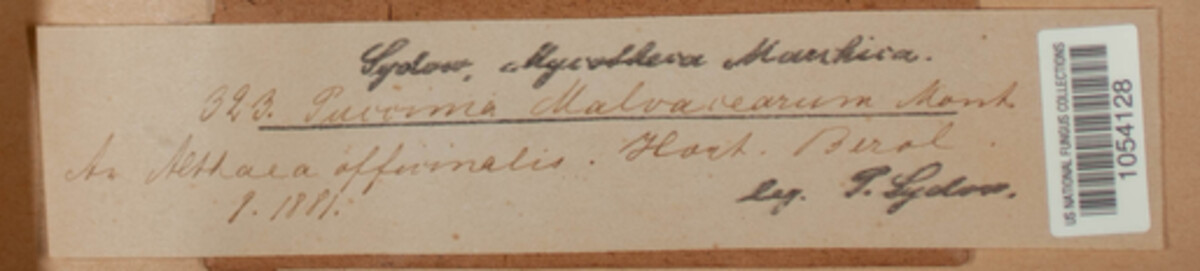 Sydow, Mycotheca Marchica.
323. Puccinia Malvacearum Mont.
An Althaea officinalis. Hort. Berol.
9. 1881.
leg. P. Sydow.
US NATIONAL FUNGUS COLLECTIONS
1054128